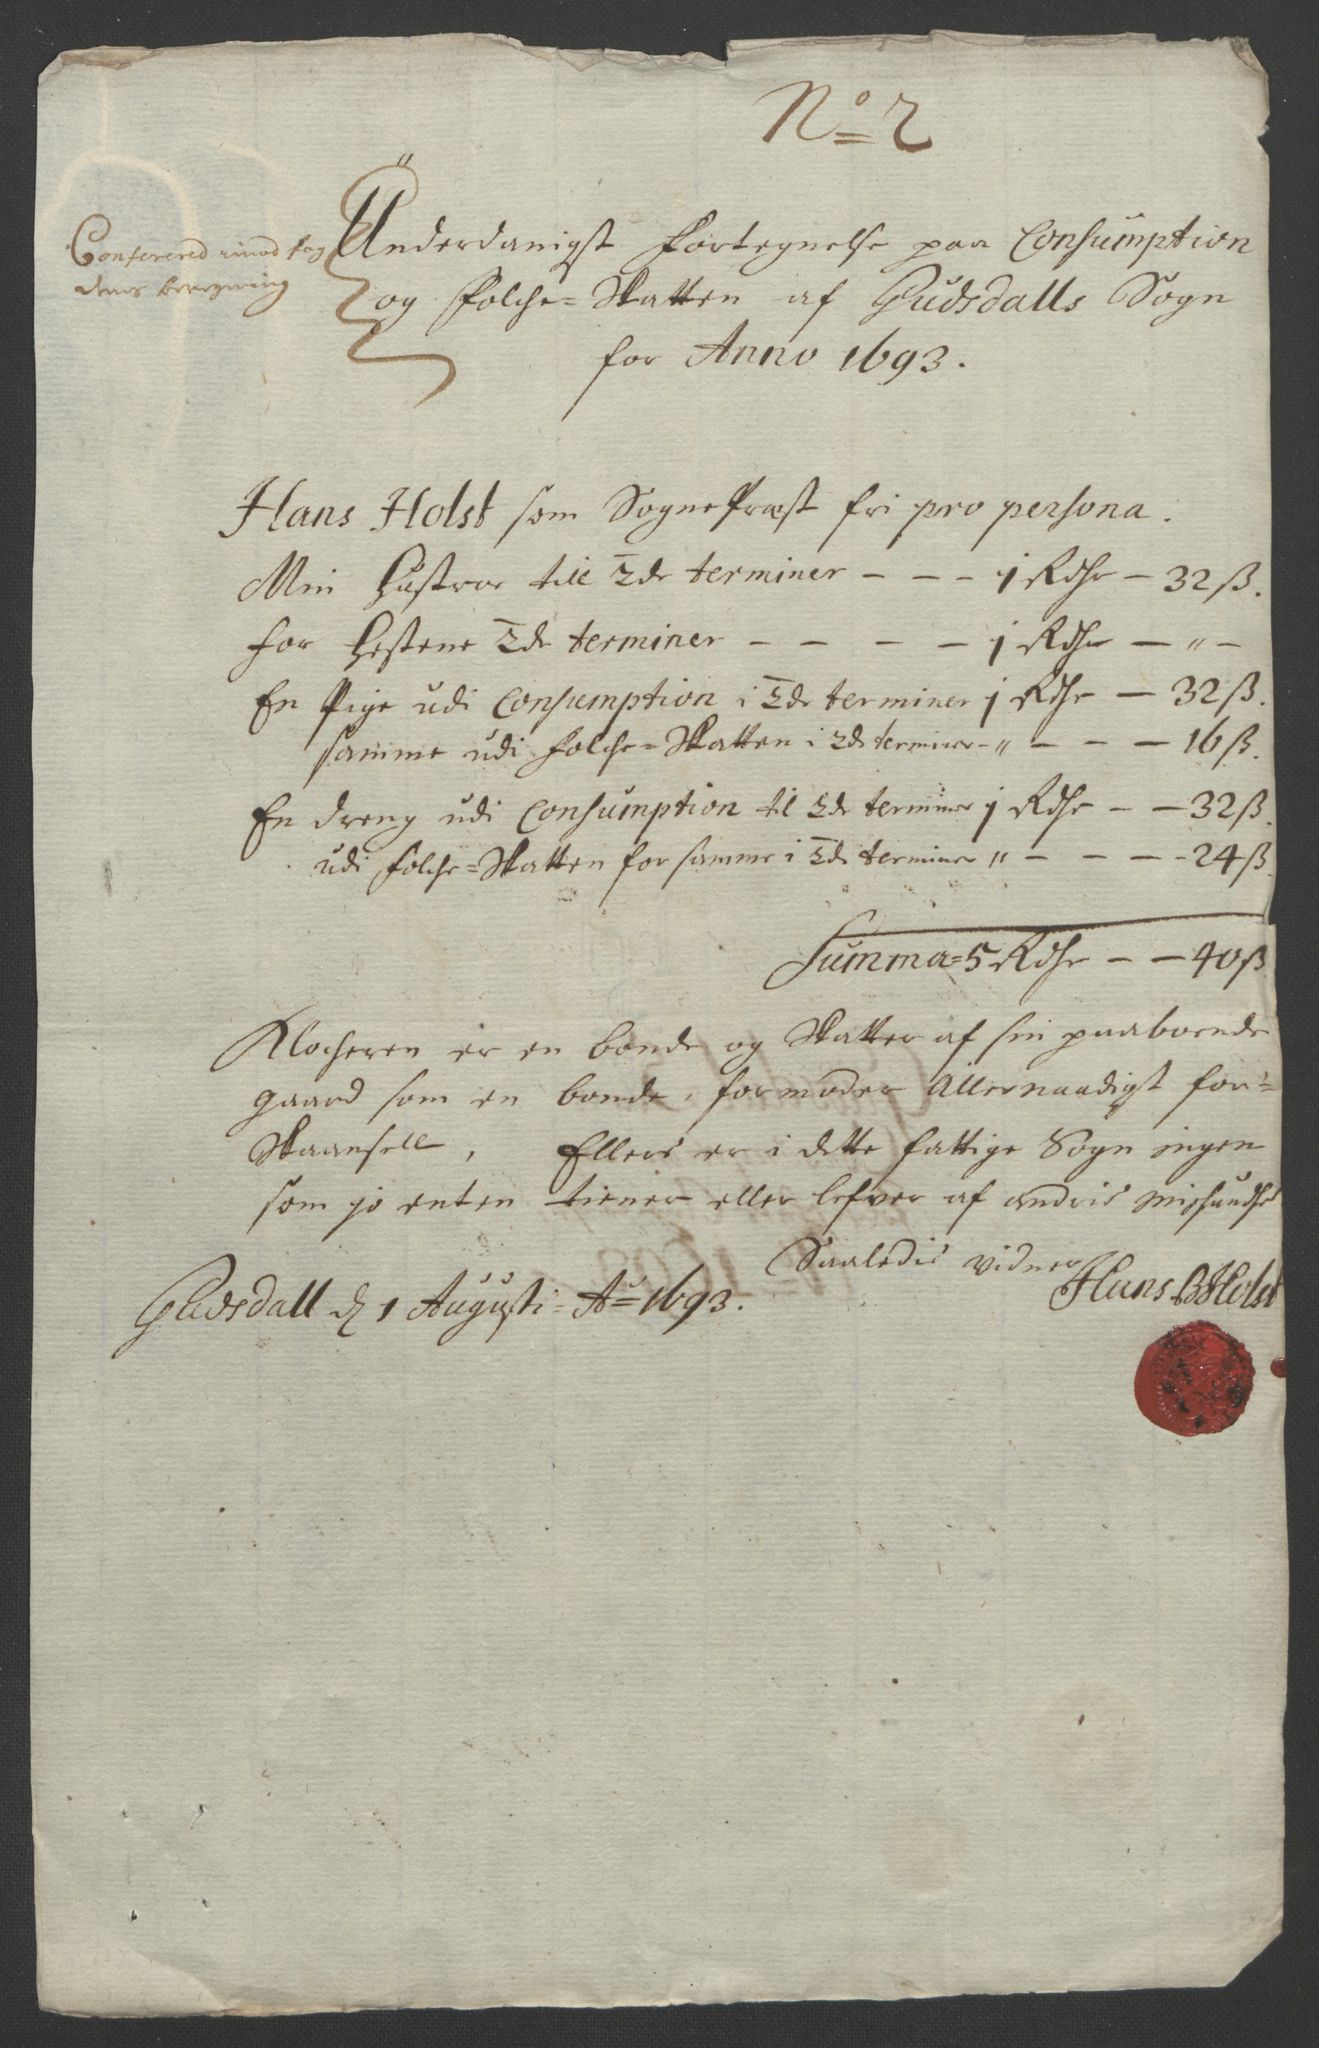 No 2
Conferered imod fog
dens beregning
Underdanigst fortegnelse paa Consumption
og Folche-Skatten af Gudsdalls Sogn
for Anno 1693.
Hans Holst som SognePræst fri pro persona.
Min Hustroe till 2de terminer - - - 1 Rdhr - 32 ß.
for Hestene 2de terminer - - - - 1 Rdhr - " -
En Pige udi Consumption i 2de terminer 1 Rdhr - 32 ß.
samme udi folche-Skatten i 2de terminer - " - - - 16 ß.
En dreng udi Consumption til 2de terminer 1 Rdhr - - 32 ß.
udi folche-Skatten for samme i 2de terminer " - - - - 24 ß.
Summa = 5 Rdhr - - 40 ß
Klocheren er en bonde og Skatter af sin paaboende
gaard som en bonde, formoder Allernaadigst for-
Skaansell, Ellers er i dette fattige Sogn ingen
som jo enten tiener eller lefver af andris Miskundhed
Saaledis vidner
Gudsdall d 1 Augusti Ao 1693.
Hans B Holst